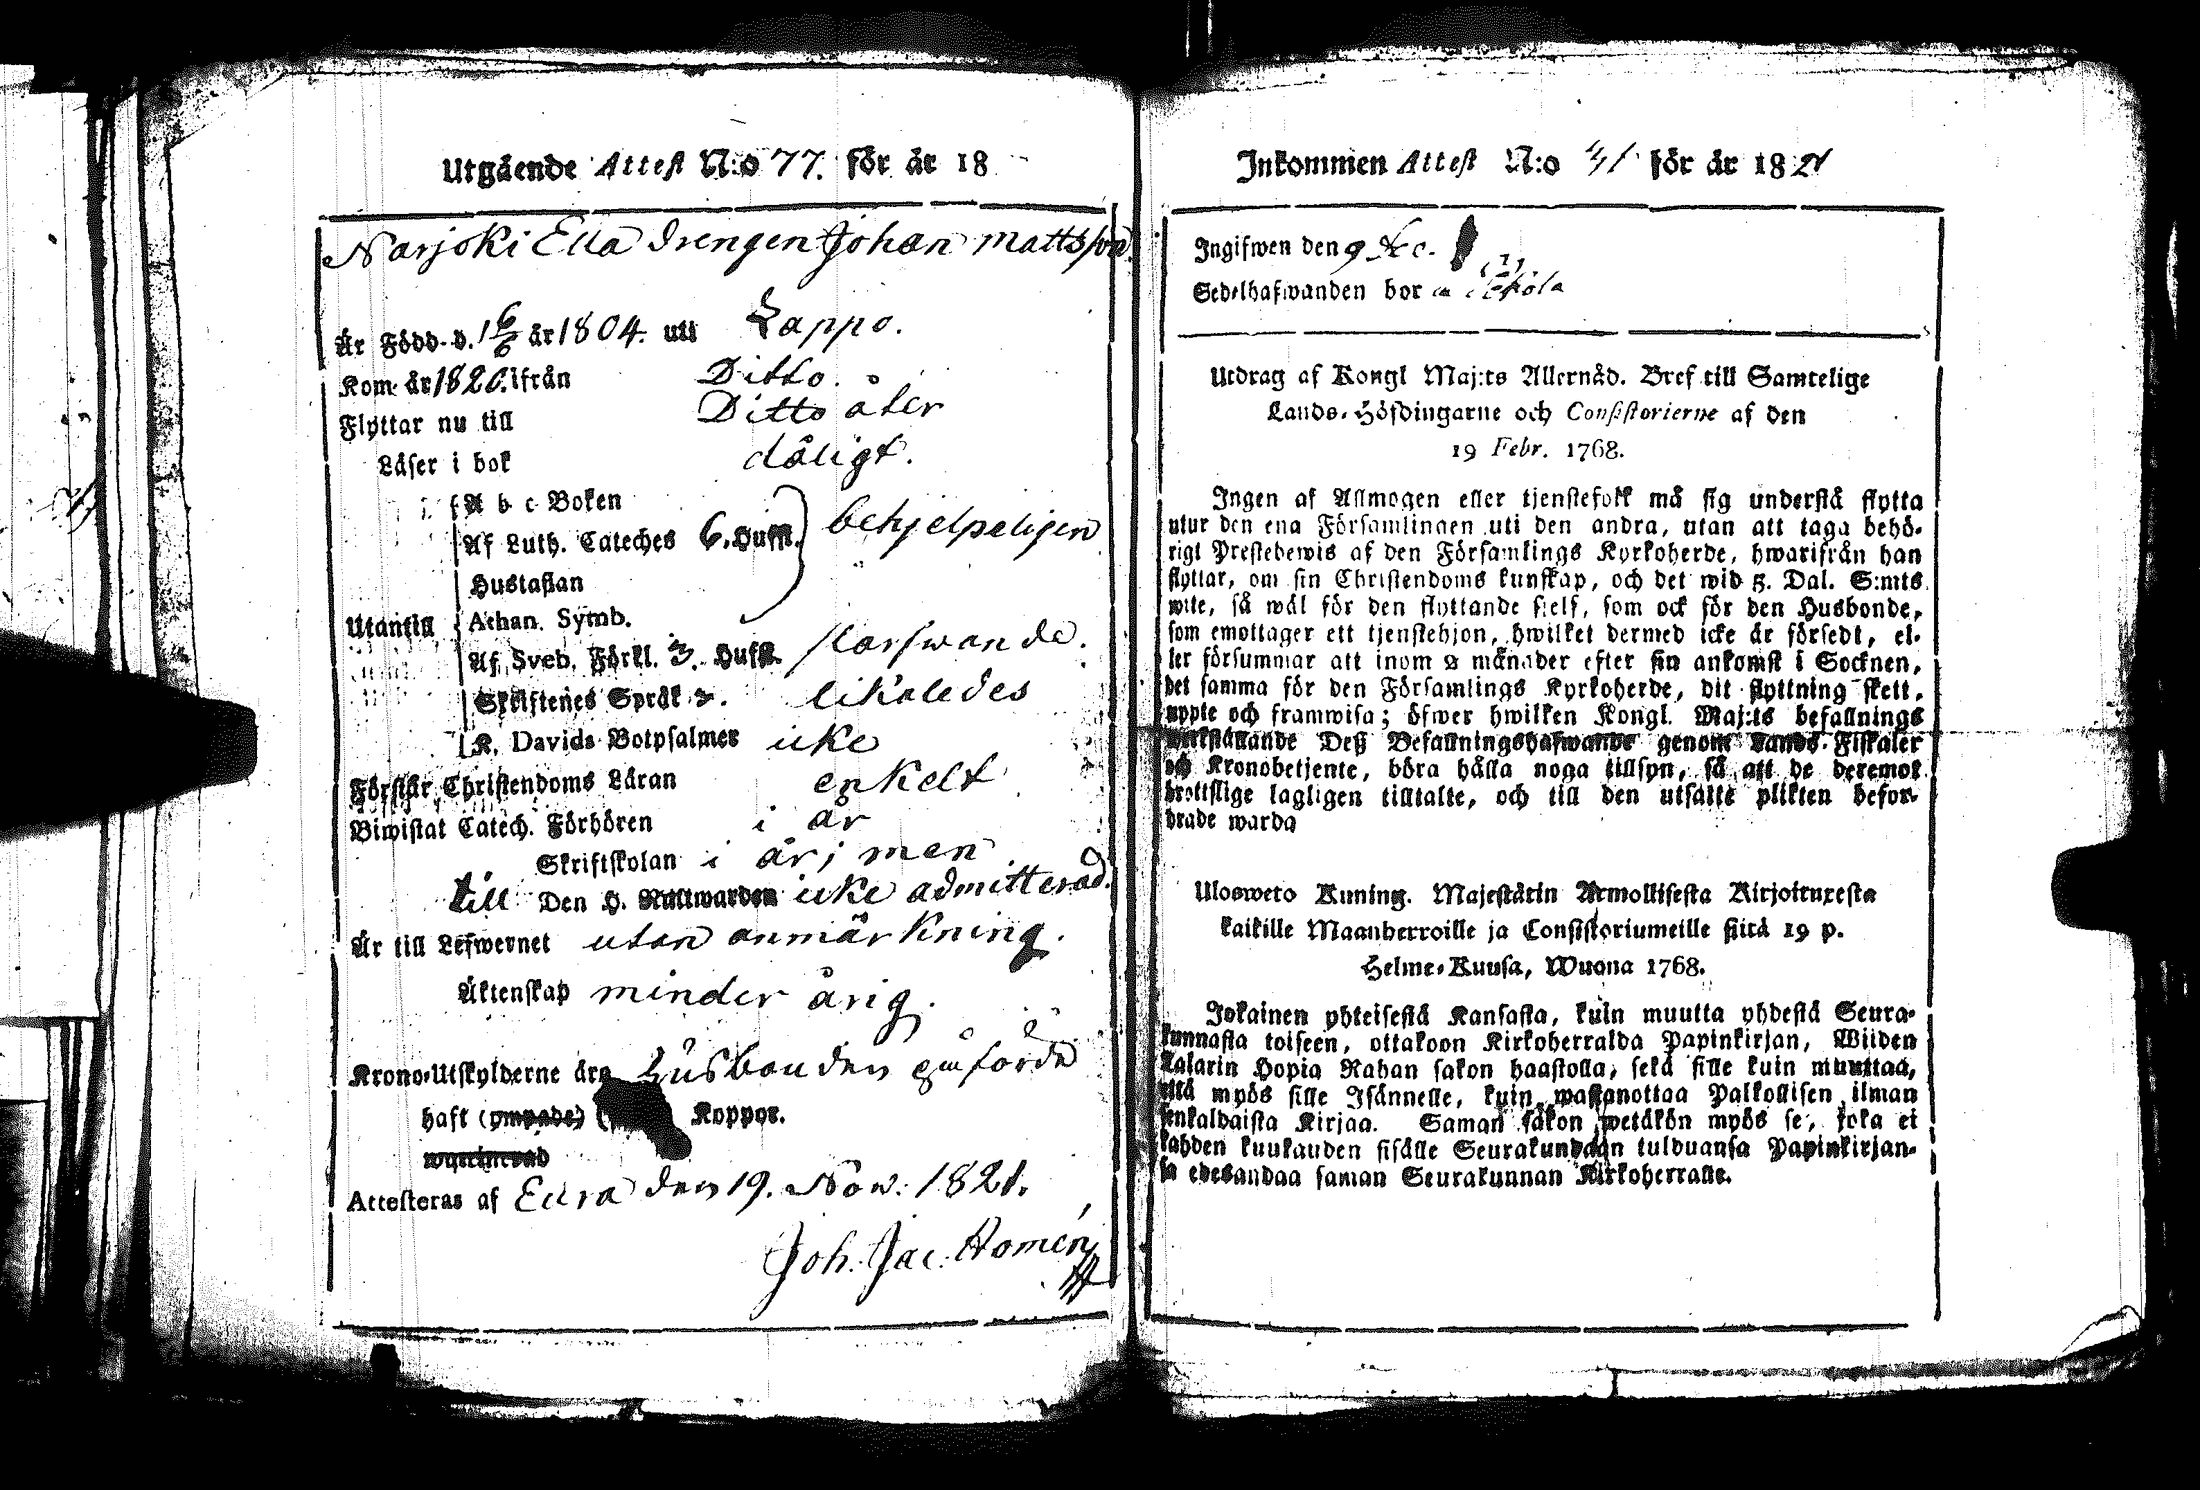 Utgående Attest N:o 77. för år 18
Narjoki Ella drengen Johan Mattsson
Är Född d. 16/6 år 1804. uti Lappo.
Kom år 1820. ifrån Ditto.
Flyttar nu till Ditto åter
Läser i bok dåligt.
A b c Boken
Af Luth. Cateches 6. Hufst. behjelpeligen
Hustaflan
Utantill Athan. Symb.
Af Sveb. Förkl. 3. Hufst. starfwande.
Skriftenes Språk likaledes
K. Davids Botpsalmer icke
Förstår Christendoms Läran enkelt
Biwistat Catech. Förhören i år
Skriftskolan i år; men
till Den H. Nattwarden icke admitterad.
Är till Lefwernet utan anmärkning.
Äktenskap minder årig.
Krono-Utskylderne äro husbonden påförde
haft (ympade) Koppor.
waccinerad
Attesteras af Eura den 19. Nov. 1821.
Joh. Jac. Homén
Inkommen Attest N:o 41 för år 1821
Ingifwen den 9 Dec.
Sedelhafwanden bor
Utdrag af Kongl Maj:ts Allernåd. Bref till Samtelige
Lands-Höfdingarne och Consistorierne af den
19 Febr. 1768.
Ingen af Allmogen eller tjenstefolk må sig understå flytta
utur den ena Församlingen uti den andra, utan att taga behö-
rigt Prestebewis af den Församlings Kyrkoherde, hwarifrån han
flyttar, om sin Christendoms kunskap, och det wid 5. Dal. S:mts
wite, så wäl för den flyttande sielf, som ock för den Husbonde,
som emottager ett tjenstehjon, hwilket dermed icke är försedt, el-
ler försummar att inom 2 månader efter sin ankomst i Socknen,
det samma för den Församlings Kyrkoherde, dit flyttning skett,
uppte och framwisa; öfwer hwilken Kongl. Maj:ts befallnings
werkställande Deß Befallningshafwande genom Lands-Fiskaler
och Kronobetjente, böra hålla noga tillsyn, så att de deremot
brottslige lagligen tilltalte, och till den utsatte plikten befor-
drade warda
Ulosweto Kuning. Majestätin Armollisesta Kirjoituxesta
kaikille Maanherroille ja Consistoriumeille siitä 19 p.
Helme-Kuusa, Wuona 1768.
Jokainen yhteisestä Kansasta, kuin muutta yhdestä Seura-
kunnasta toiseen, ottakoon Kirkoherralda Papinkirjan, Wiiden
Talarin Hopia Rahan sakon haastolla, sekä sille kuin muuttaa,
että myös sille Isännelle, kuin wastanottaa Palkollisen ilman
senkaldaista Kirjaa. Saman sakon wetäkön myös se, joka ei
kahden kuukauden sisälle Seurakundaan tulduansa Papinkirjan-
sa edesandaa saman Seurakunnan Kirkoherralle.